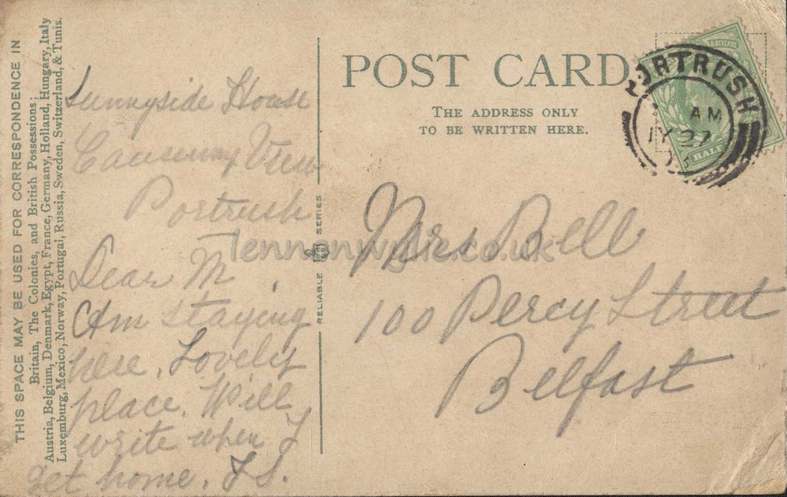 THIS SPACE MAY BE USED FOR CORRESPONDENCE IN
Britain, The Colonies, and British Possessions;
Austria, Belgium, Denmark, Egypt, France, Germany, Holland, Hungary, Italy
Luxemburg, Mexico, Norway, Portugal, Russia, Sweden, Switzerland, & Tunis.
Sunnyside House
Causeway View
Portrush
Dear M,
Am staying
here. Lovely
place. Will
write when I
get home. J S.
RELIABLE SERIES
POST CARD
THE ADDRESS ONLY
TO BE WRITTEN HERE.
PORTRUSH
AM
27
HALF
Mrs Bell
100 Percy Street
Belfast
lennonwylie.co.uk